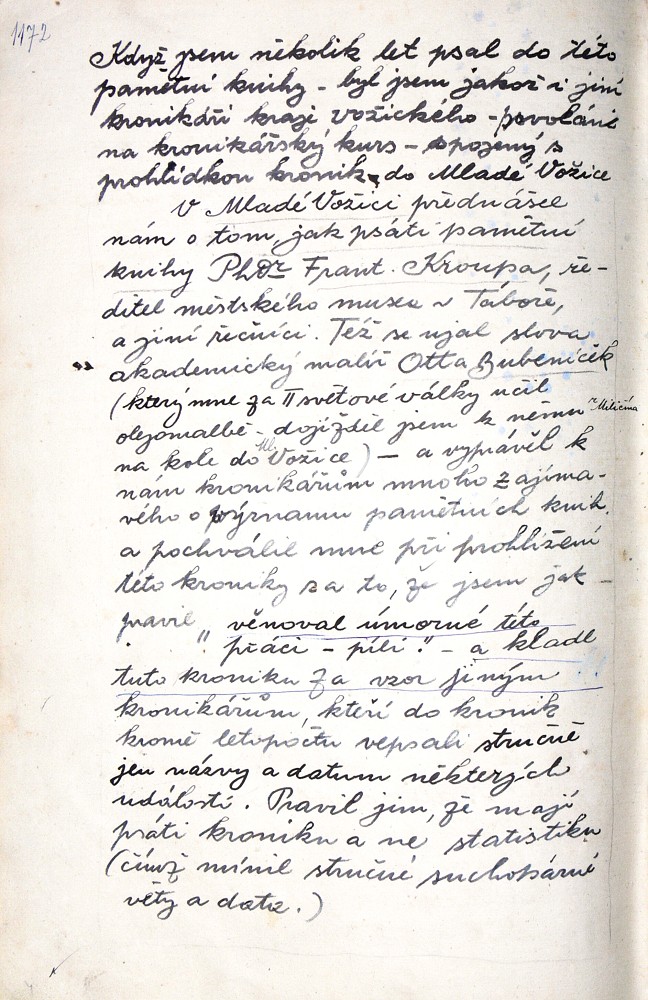 1172
Když jsem několik let psal do této
pamětní knihy - byl jsem jakož i jiní
kronikáři kraje vožického - povoláni
na kronikářský kurs - spojený s
prohlídkou kronik, do Mladé Vožice
V Mladé Vožici přednášel
nám o tom, jak psáti pamětní
knihy PhDr Frant. Kroupa, ře-
ditel městského musea v Táboře,
a jiní řečníci. Též se ujal slova
akademický malíř Otta Bubeníček
(který mne za II světové války učil
olejomalbě - dojížděl jsem k němu z Miličína
na kole do Ml. Vožice) - a vyprávěl k
nám kronikářům mnoho zajíma-
vého o významu pamětních knih.
a pochválil mne při prohlížení
této kroniky za to, že jsem jak
pravil "věnoval úmorné této
práci - píli." - a kladl
tuto kroniku za vzor jiným
kronikářům, kteří do kronik
kromě letopočtu vepsali stručně
jen názvy a datum některých
událostí. Pravil jim, že mají
psáti kroniku a ne statistiku
(čímž mínil stručné suchopárné
věty a data.)